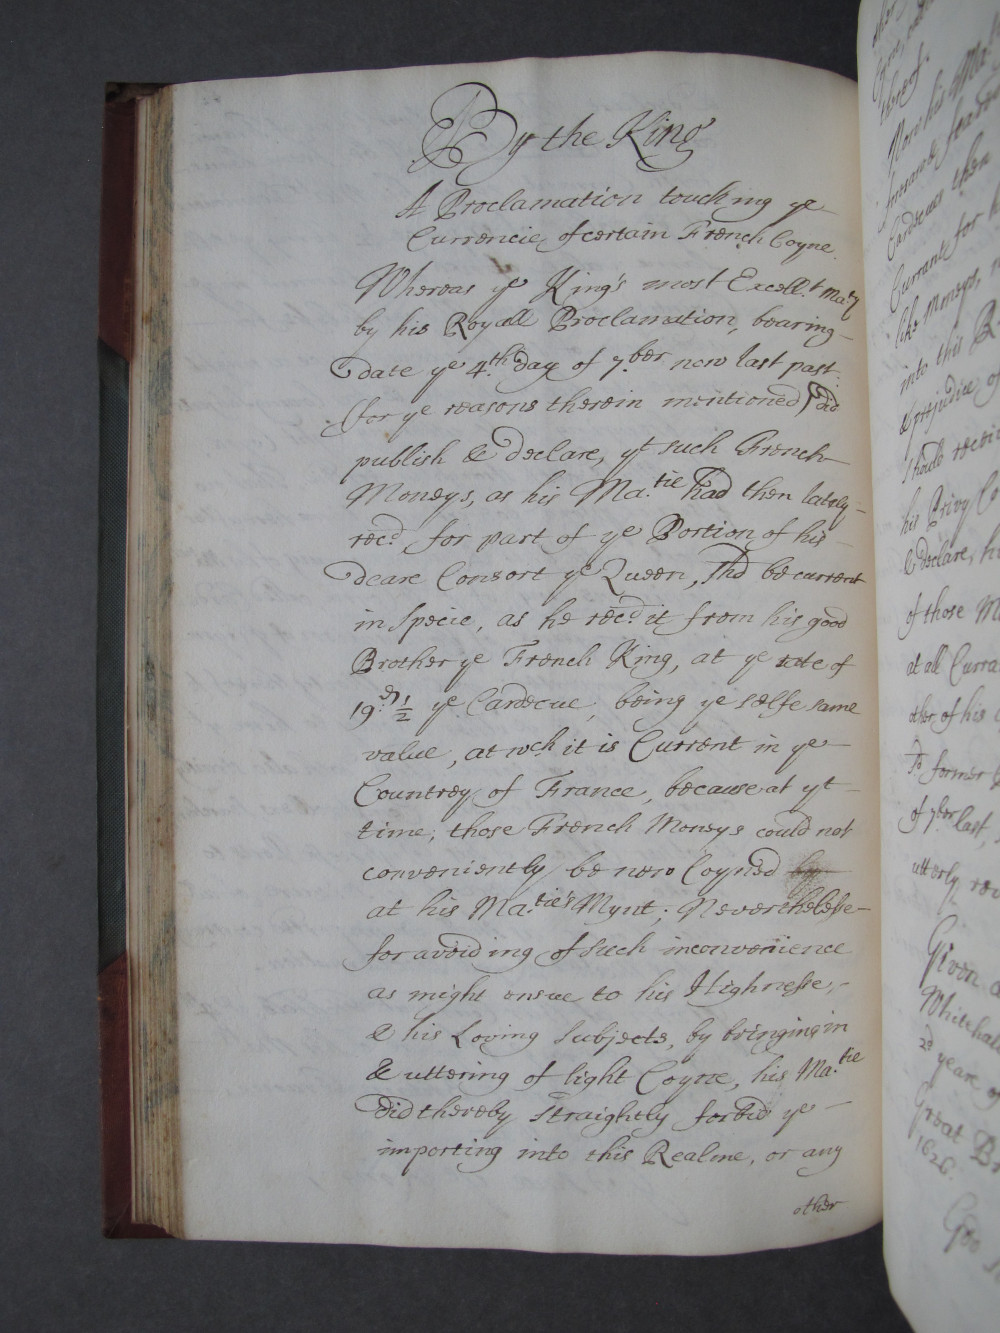 By the King
A Proclamation touching ye
Currencie of certain French Coyne.
Whereas ye King's most Excell.t Ma.ty
by his Royall Proclamation, bearing
date ye 4.th day of 7.ber now last past
for ye reasons therein mentioned did
publish & declare, yt such French
Moneys, as his Ma.tie had then lately
rec.d for part of ye Portion of his
deare Consort ye Queen, sh.d be current
in Specie, as he rec.d it from his good
Brother ye French King, at ye rate of
19.d ½ ye Cardecue, being ye selfe same
value, at wch it is Current in ye
Countrey of France, because at yt
time, those French Moneys could not
conveniently be new Coyned
at his Ma.tie's Mynt; Neverthelesse
for avoiding of such inconvenience
as might ensue to his Highnesse,
& his Loving Subjects, by bringing in
& uttering of light Coyne, his Ma.tie
did thereby straightly forbid ye
importing into this Realme, or any
other
thereof.
Now his Ma
Cardecues then
Currant for
like Moneys,
into this R
& prejudice of
should receiv
his Privy Co
& declare, h
of those Mo
at all Curra
other of his
s.d former
of 7ber last,
utterly rev
Given a
Whitehal
2.d yeare of
Great Br
1626.
God